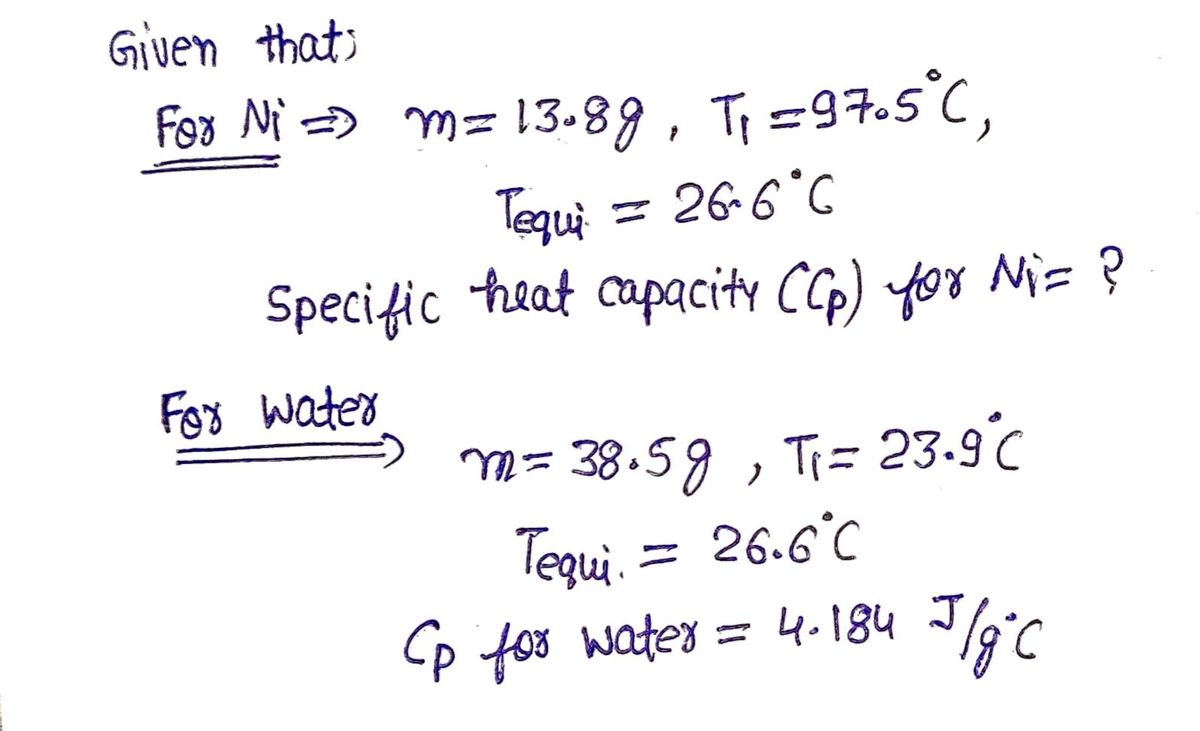 Given that;
For Ni ⇒ m = 13.8g , T₁ = 97.5°C,
Tequi. = 26.6°C
Specific heat capacity (Cp) for Ni = ?
For water ⇒ m = 38.5g , T₁ = 23.9°C
Tequi. = 26.6°C
Cp for water = 4.184 J/g°C